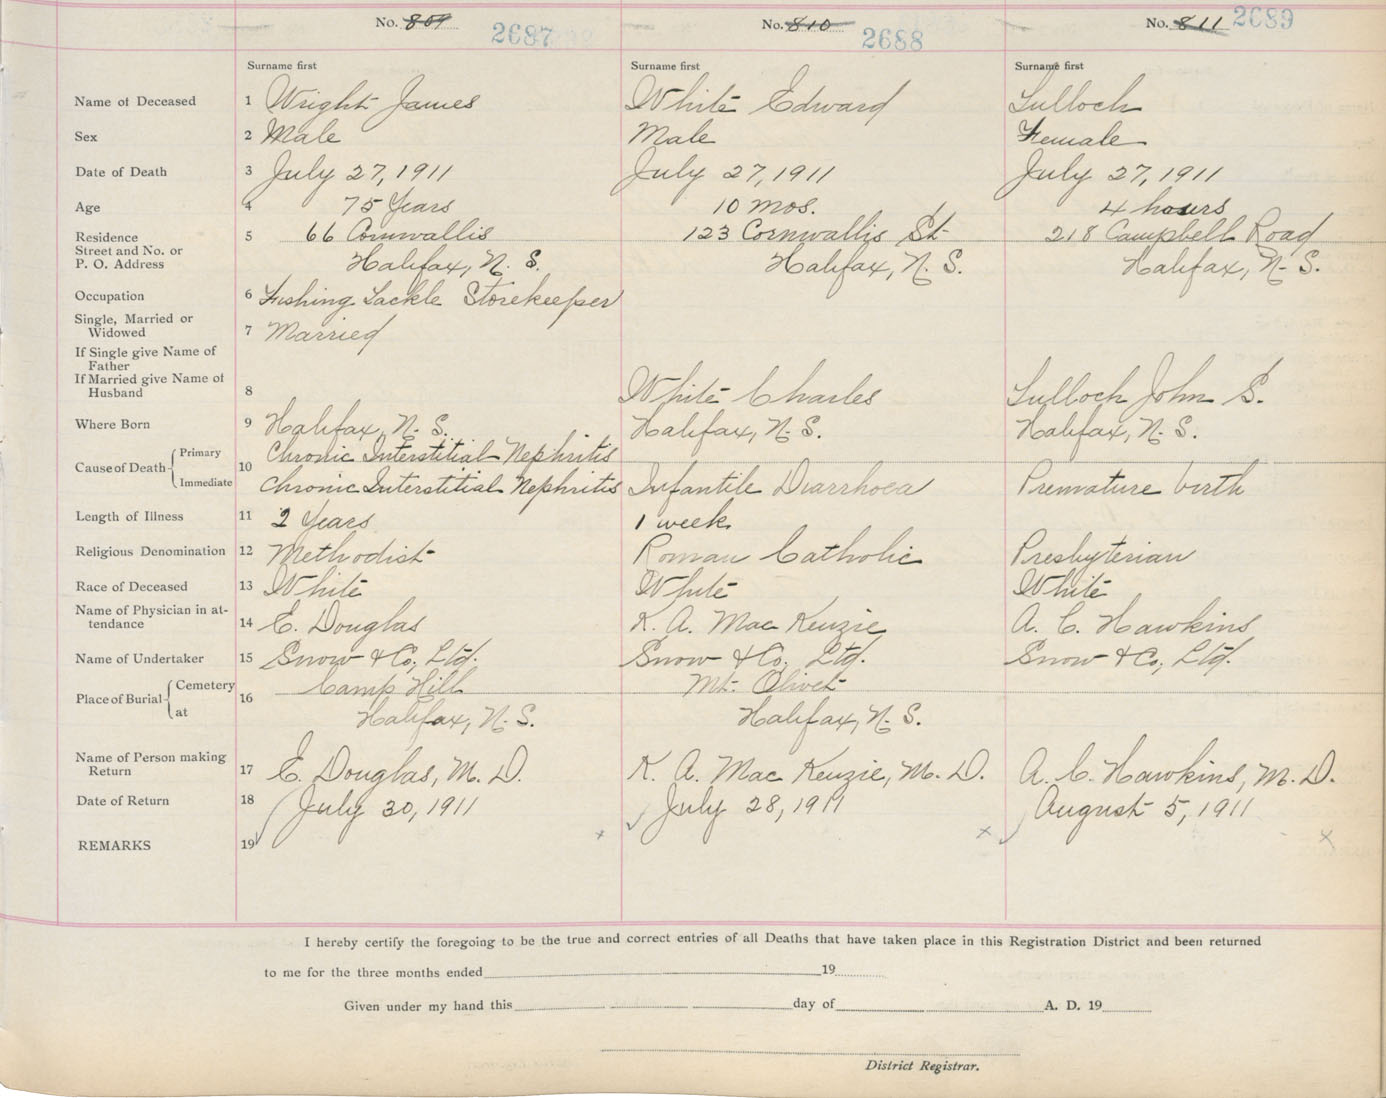 No. 809 2687 No. 810 2688 No. 811 2689
Surname first Surname first Surname first
Name of Deceased 1 Wright James White Edward Tulloch
Sex 2 Male Male Female
Date of Death 3 July 27, 1911 July 27, 1911 July 27, 1911
Age 4 75 Years 10 mos. 4 hours
Residence 5 66 Cornwallis 123 Cornwallis St. 218 Campbell Road
Street and No. or
P. O. Address Halifax, N. S. Halifax, N. S. Halifax, N. S.
Occupation 6 Fishing Tackle Storekeeper
Single, Married or
Widowed 7 Married
If Single give Name of
Father
If Married give Name of
Husband 8 White Charles Tulloch John S.
Where Born 9 Halifax, N. S. Halifax, N. S. Halifax, N. S.
Primary Chronic Interstitial Nephritis
Cause of Death 10
Immediate Chronic Interstitial Nephritis Infantile Diarrhoea Premature birth
Length of Illness 11 2 Years 1 week
Religious Denomination 12 Methodist Roman Catholic Presbyterian
Race of Deceased 13 White White White
Name of Physician in at-
tendance 14 E. Douglas K. A. Mac Kenzie A. C. Hawkins
Name of Undertaker 15 Snow & Co, Ltd. Snow & Co, Ltd. Snow & Co, Ltd.
Cemetery Camp Hill Mt. Olivet
Place of Burial 16
at Halifax, N. S. Halifax, N. S.
Name of Person making
Return 17 E. Douglas, M. D. K. A. Mac Kenzie, M. D. A. C. Hawkins, M. D.
Date of Return 18 July 30, 1911 July 28, 1911 August 5, 1911
REMARKS 19
I hereby certify the foregoing to be the true and correct entries of all Deaths that have taken place in this Registration District and been returned
to me for the three months ended 19
Given under my hand this day of A. D. 19
District Registrar.